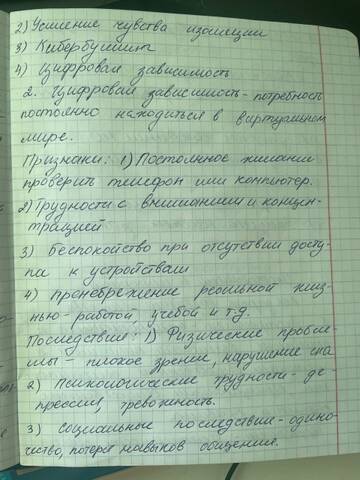 2) Усиление чувства изоляции
3) Кибербуллинг
4) Цифровая зависимость
2. Цифровая зависимость - потребность
постоянно находиться в виртуальном
мире.
Признаки: 1) Постоянное желание
проверить телефон или компьютер.
2) Трудности с вниманием и концен-
трацией
3) Беспокойство при отсутствии досту-
па к устройствам
4) Пренебрежение реальной жиз-
нью - работой, учебой и т.д.
Последствия: 1) Физические пробле-
мы - плохое зрение, нарушение сна
2) Психологические трудности - де-
прессия, тревожность.
3) Социальные последствия - одино-
чество, потеря навыков общения.